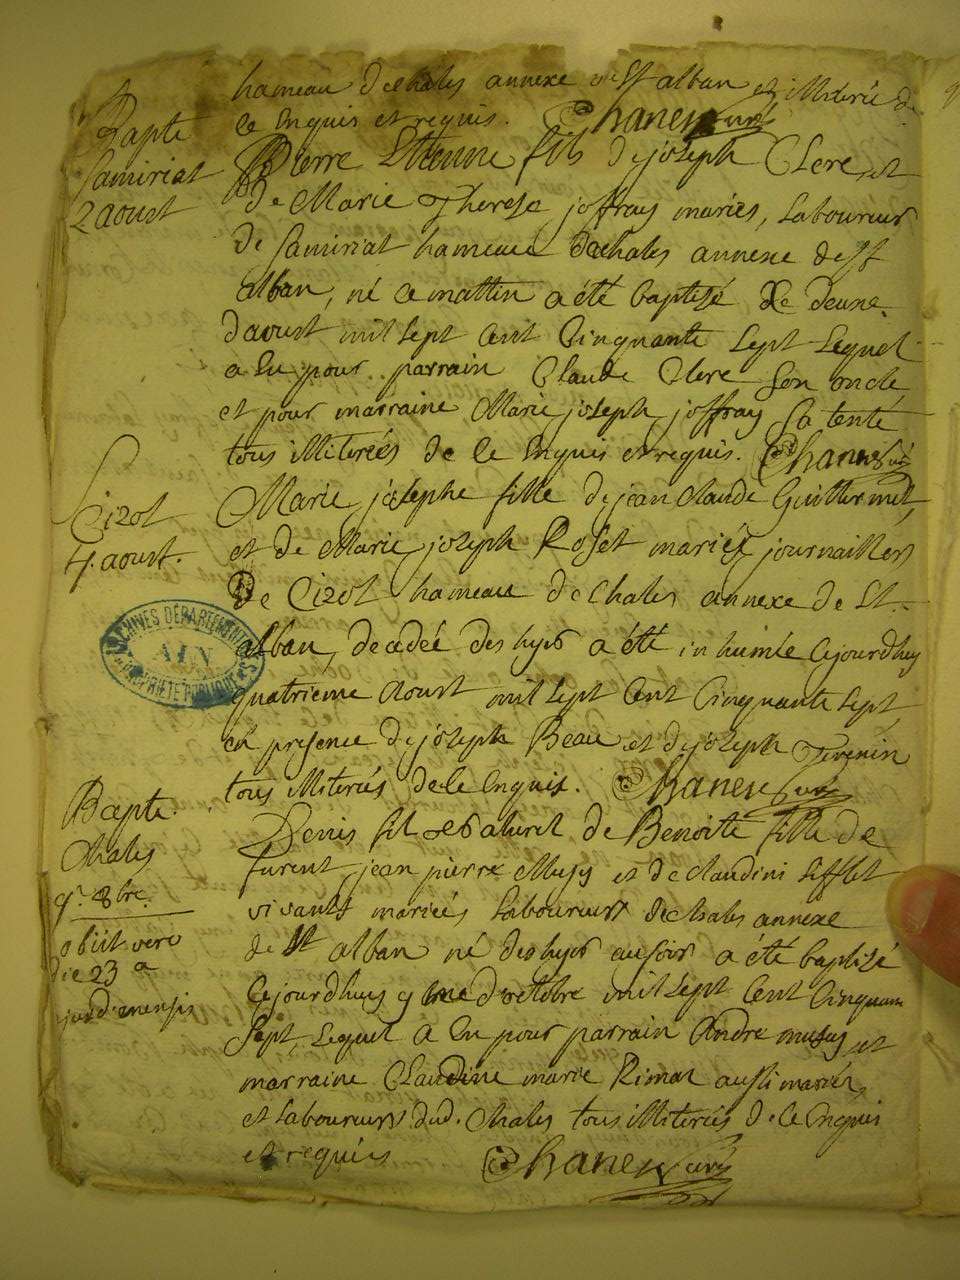 hameau de chales annexe de St alban et illiterié de
ce Enquis et requis. Chanel curé
Bapte
Samiriat
2 aoust
Pierre Etienne fils de joseph Clere et
de Marie Therese joffray mariés, Laboureur
de Samiriat hameau de chales annexe de St
alban, né ce mattin a été baptisé Le deuxe.
daoust mil sept cent Cinquante Sept Lequel
a Eu pour parrain Claude Clere Son oncle
et pour marraine Marie joseph joffray Sa tente
tous illiterées de ce Enquis et requis. Chanel curé
Cizot
4. aoust.
Marie josephe fille de jean Claude Guillermet,
et de Marie joseph Roset mariés journaillers
de Cizot hameau de chales annexe de St.
alban, decedée des hyer a été inhumée Cejourdhuy
quatrieme Aoust mil sept Cent Cinquante Sept
en presence de joseph Beau et de joseph Tevenin
tous illiterés de ce Enquis. Chanel curé
Bapte.
Chales
9. 8bre.
obiit vero
die 23 a
ejusd. mensis
Denis fil naturel de Benoite fille de
furent jean pierre Musy et de Claudine Sifflet
vivants mariés Laboureurs de chales annexe
de St alban né des hyer au soir a été baptisé
Cejourdhuy 9 me d'octobre mil sept Cent Cinquante
Sept, Lequel a Eu pour parrain Andre musy et
marraine Claudine marie Rimoz aussi mariés,
et Laboureurs dud. Chales tous illiterés de ce Enquis
et requis Chanel curé
ARCHIVES DÉPARTEMENTALES
AIN
PROPRIÉTÉ PUBLIQUE